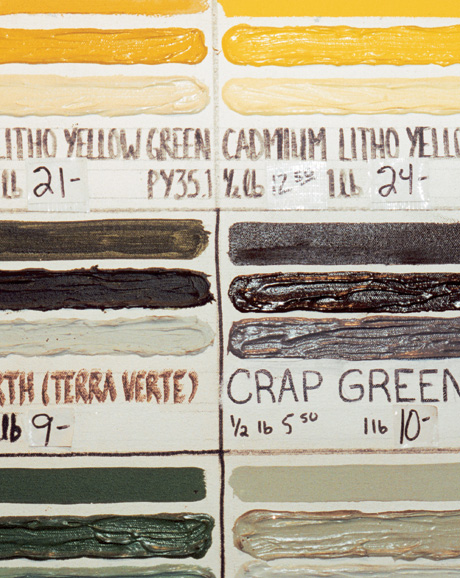 LITHO YELLOW GREEN
lb 21- PY35.1
CADMIUM LITHO YELLO
½ lb 12.50 1 lb 24-
RTH (TERRA VERTE)
lb 9-
CRAP GREEN
1/2 lb 5 50 1 lb 10-